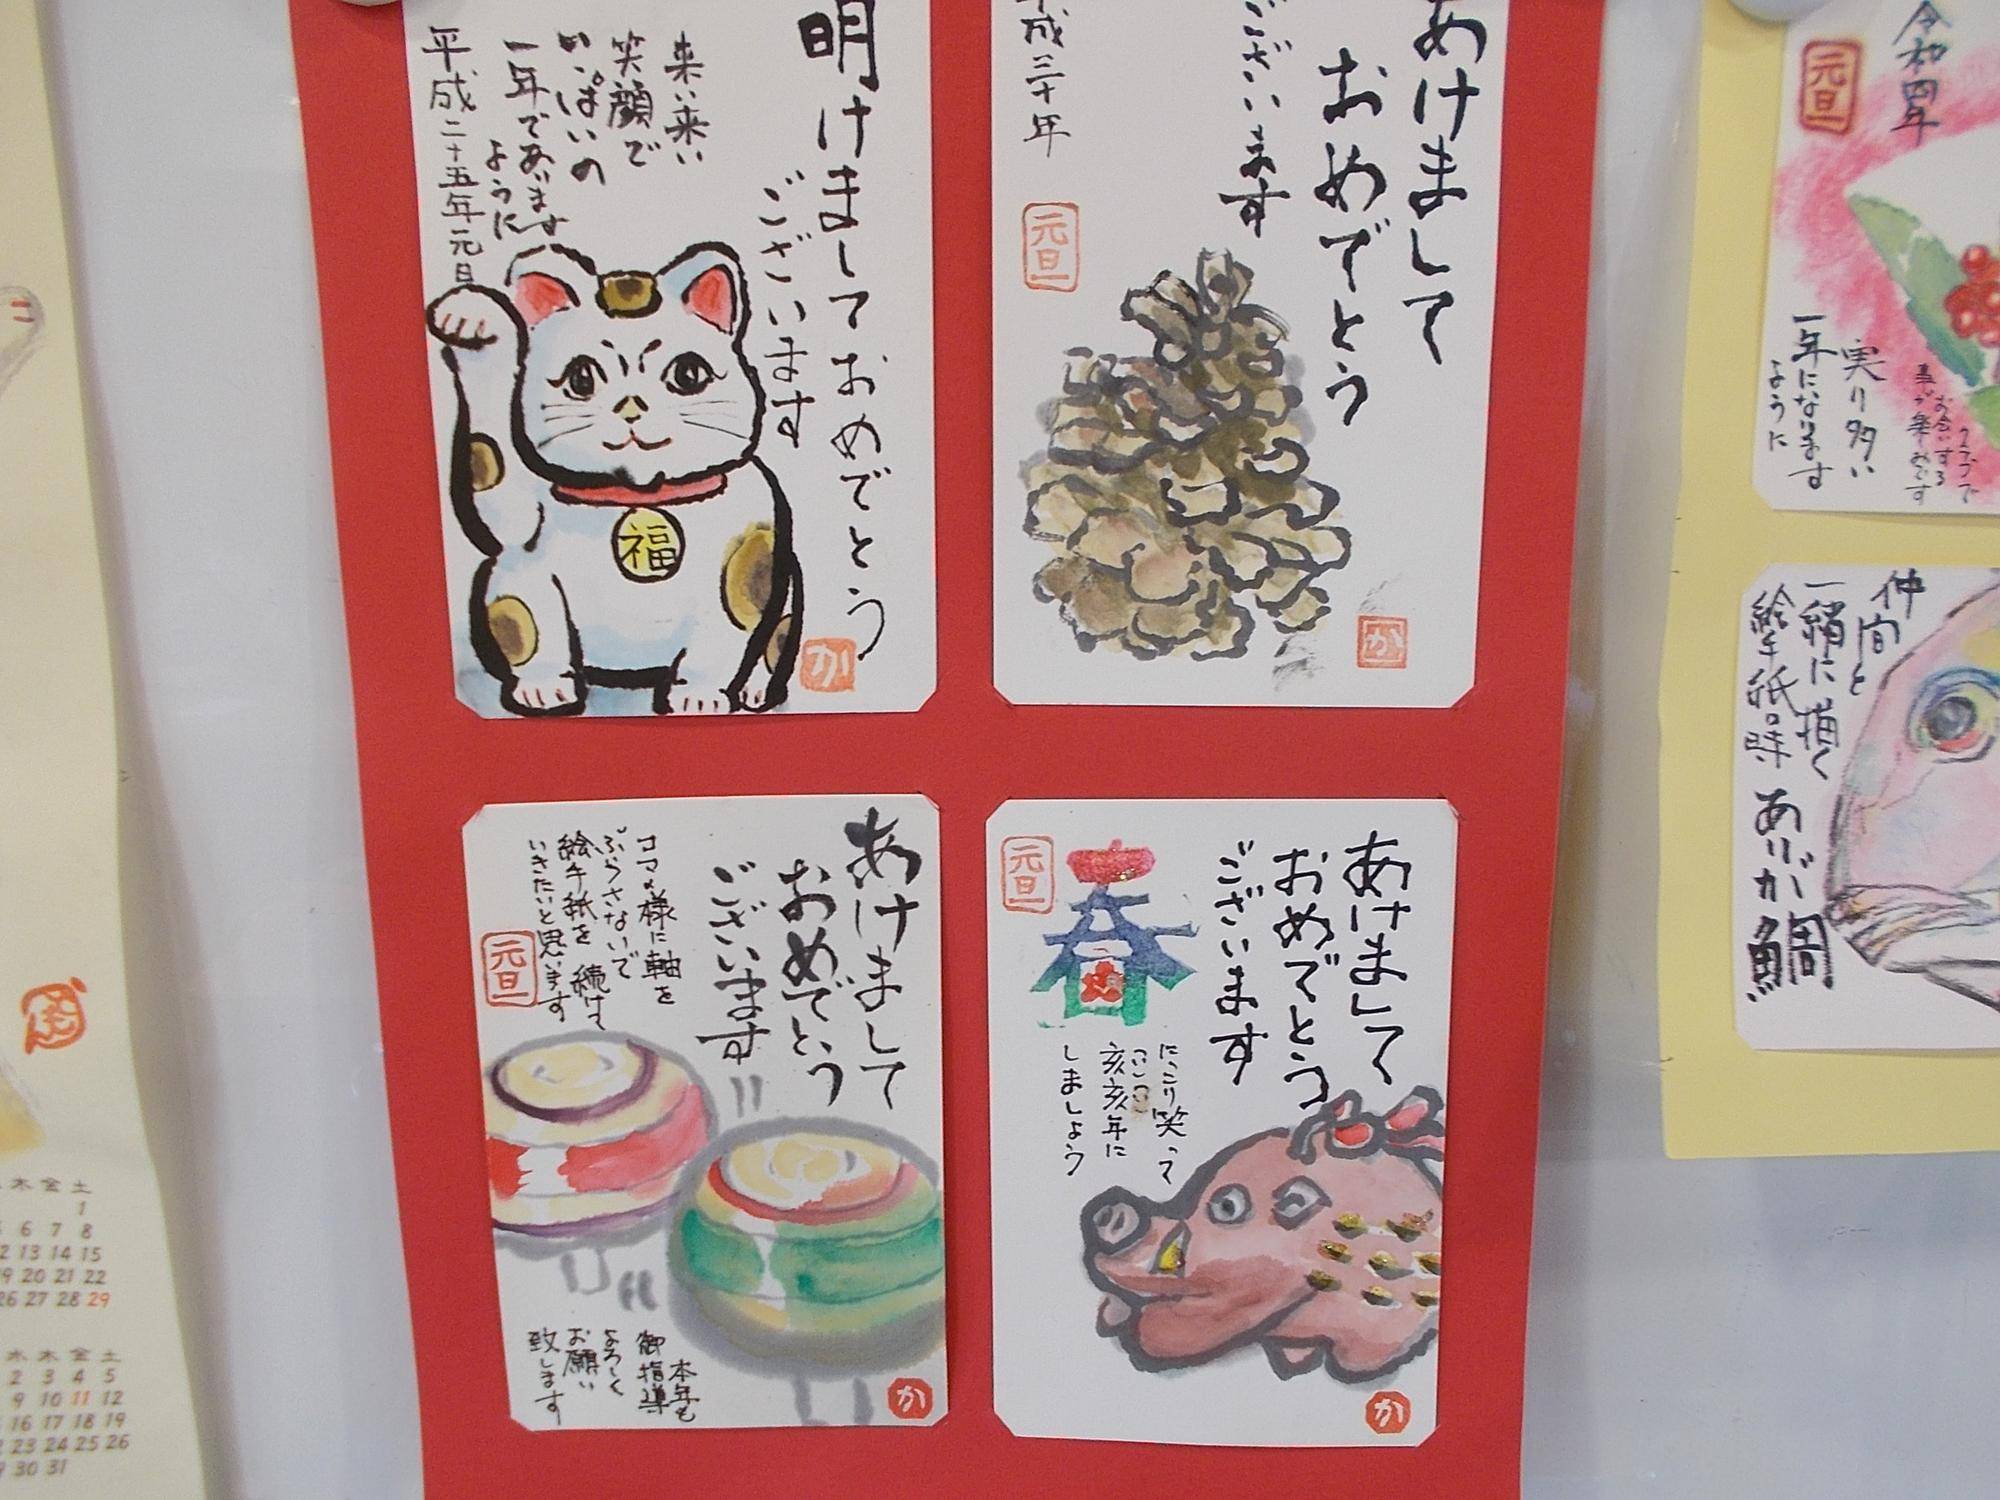 明けましておめでとう
ございます
来い来い
笑顔で
いっぱいの
一年であります
ように
平成二十五年元日
福
か
あけまして
おめでとう
ございます
成三十年
元旦
か
あけまして
おめでとう
ございます
コマの様に軸を
ぶらさないで
絵手紙を続けて
いきたいと思います
元旦
本年も
御指導
よろしく
お願い
致します
か
あけまして
おめでとう
ございます
春
元旦
にっこり笑って
亥亥年に
しましょう
か
令和四年
元旦
お会いする
事が楽みです
実り多い
一年になります
ように
仲間と
一緒に描く
絵手紙の味
ありが鯛
木金土
1
6 7 8
12 13 14 15
19 20 21 22
26 27 28 29
木木金土
2 3 4 5
9 10 11 12
16 17 18 19
23 24 25 26
30 31